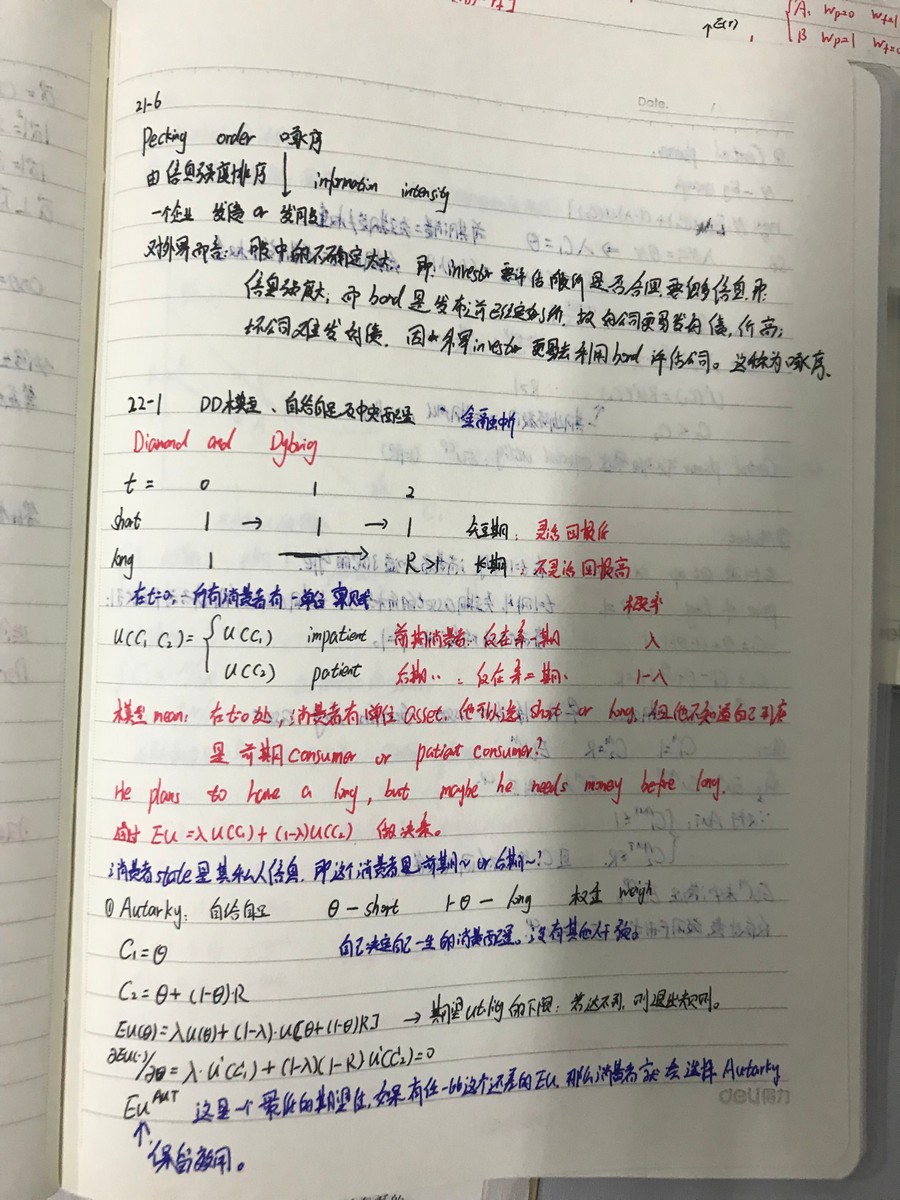 ↑E(r),
A: Wp=0
B Wp=1
Date. /
21-6
Pecking order 啄序
由信息强度排序 ↓ information intensity
一个企业 发债 or 发股
对外界而言: 股中的不确定太大, 即: investor 要评估股价是否合理要很多信息, 那
信息强度大; 而 bond 是发布前已经定好价, 故好公司更易发好债, 价高;
坏公司难发好债, 因此外界investor 更易去利用bond 评估公司。这称为啄序.
22-1 DD模型、自给自足及中央配置 金融中介
Diamond and Dybvig
t = 0 1 2
short 1 → 1 → 1 短期: 灵活回报低
long 1 → R>1 长期: 不灵活回报高
在t=0, 所有消费者有一单位禀赋 概率
U(C1 C2) = { U(C1) impatient 前期消费者: 仅在第一期 λ
U(C2) patient 后期‥: 仅在第二期‥ 1-λ
模型mean: 在t=0处, 消费者有1单位asset, 他可以选short or long, 但他不知道自己到底
是前期consumer or patient consumer?
He plans to have a long, but maybe he needs money before long.
EU = λU(C1) + (1-λ)U(C2) 做决策。
消费者state是其私人信息, 即这个消费者是前期~ or 后期~?
① Autarky: 自给自足 θ — short 1-θ — long 权重 weigh
C1 = θ 自己决定自己一生的消费配置。没有其他人干预。
C2 = θ + (1-θ)·R
EU(θ) = λU(θ) + (1-λ)·U[θ + (1-θ)R] → 期望utility的下限: 若达不到, 则退出规则。
∂EU(·)/∂θ = λ·U'(C1) + (1-λ)(1-R)U'(C2) = 0
EU^AUT 这是一个最低的期望值, 如果有任一比这个还差的EU, 那么消费者就会选择Autarky
↑
保留效用。
deli得力